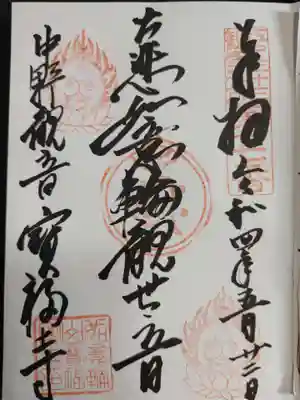 奉拝 令和四年五月廿二日
大悲如意輪観世音
中野観音 寶福寺